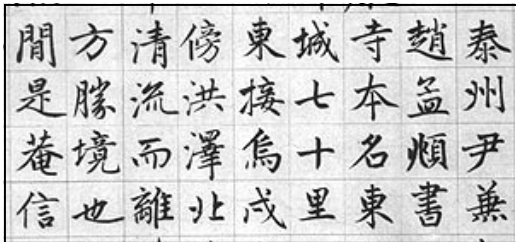 泰州尹兼
趙孟頫書
寺本名東
城七十里
東接烏戍
傍洪澤北
清流而離
方勝境也
間是菴信